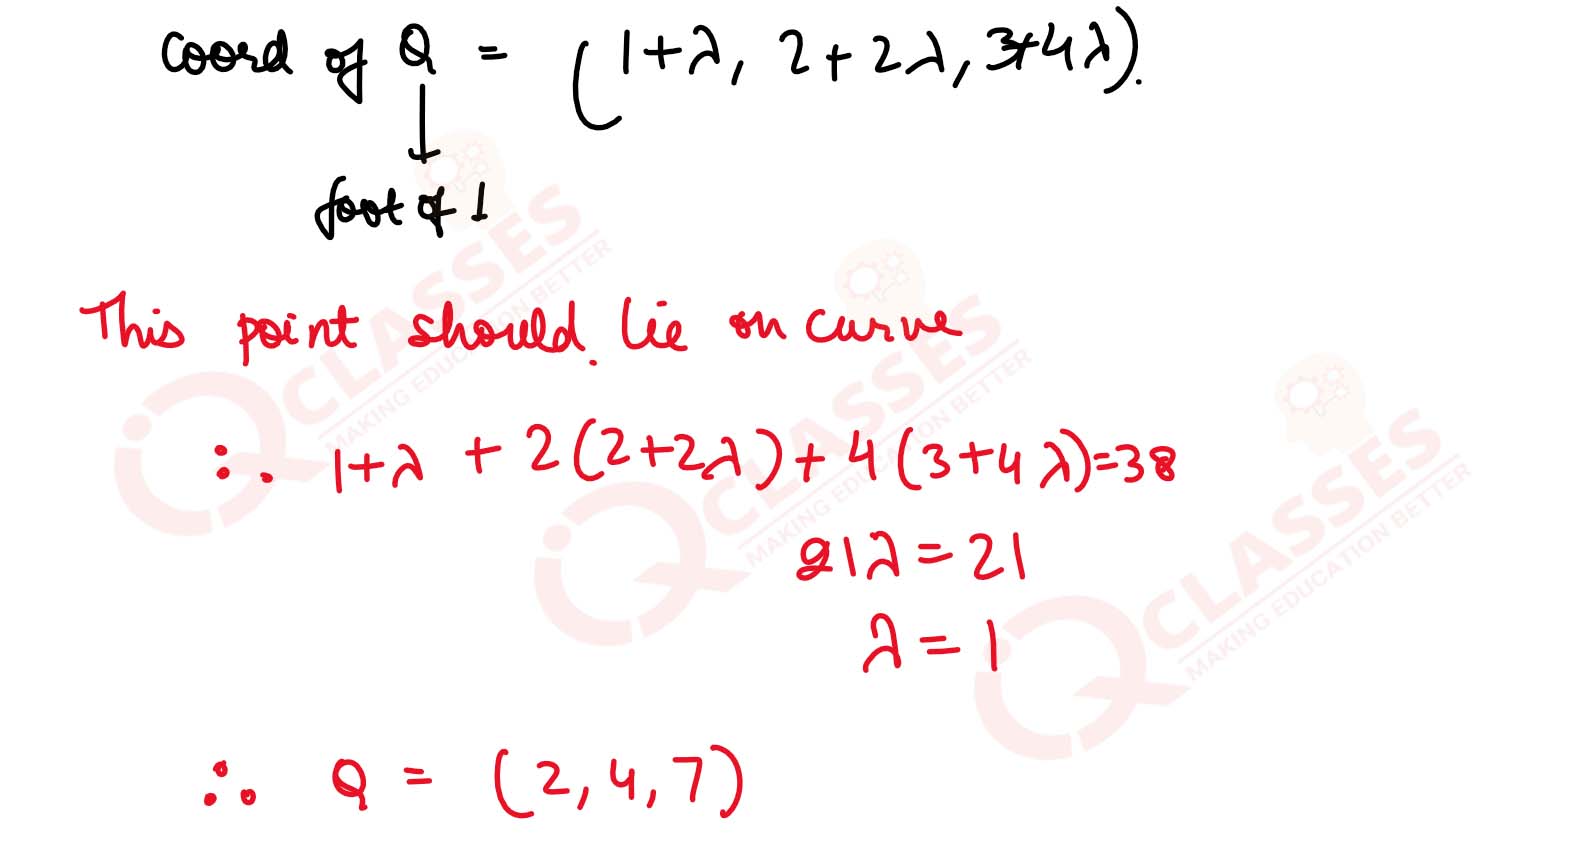 coord of Q = (1+λ, 2+2λ, 3+4λ).
↓
foot of ⊥
This point should lie on curve
∴ 1+λ + 2(2+2λ) + 4(3+4λ)=38
21λ = 21
λ = 1
∴ Q = (2, 4, 7)
iQ CLASSES
MAKING EDUCATION BETTER
iQ CLASSES
MAKING EDUCATION BETTER
iQ CLASSES
MAKING EDUCATION BETTER